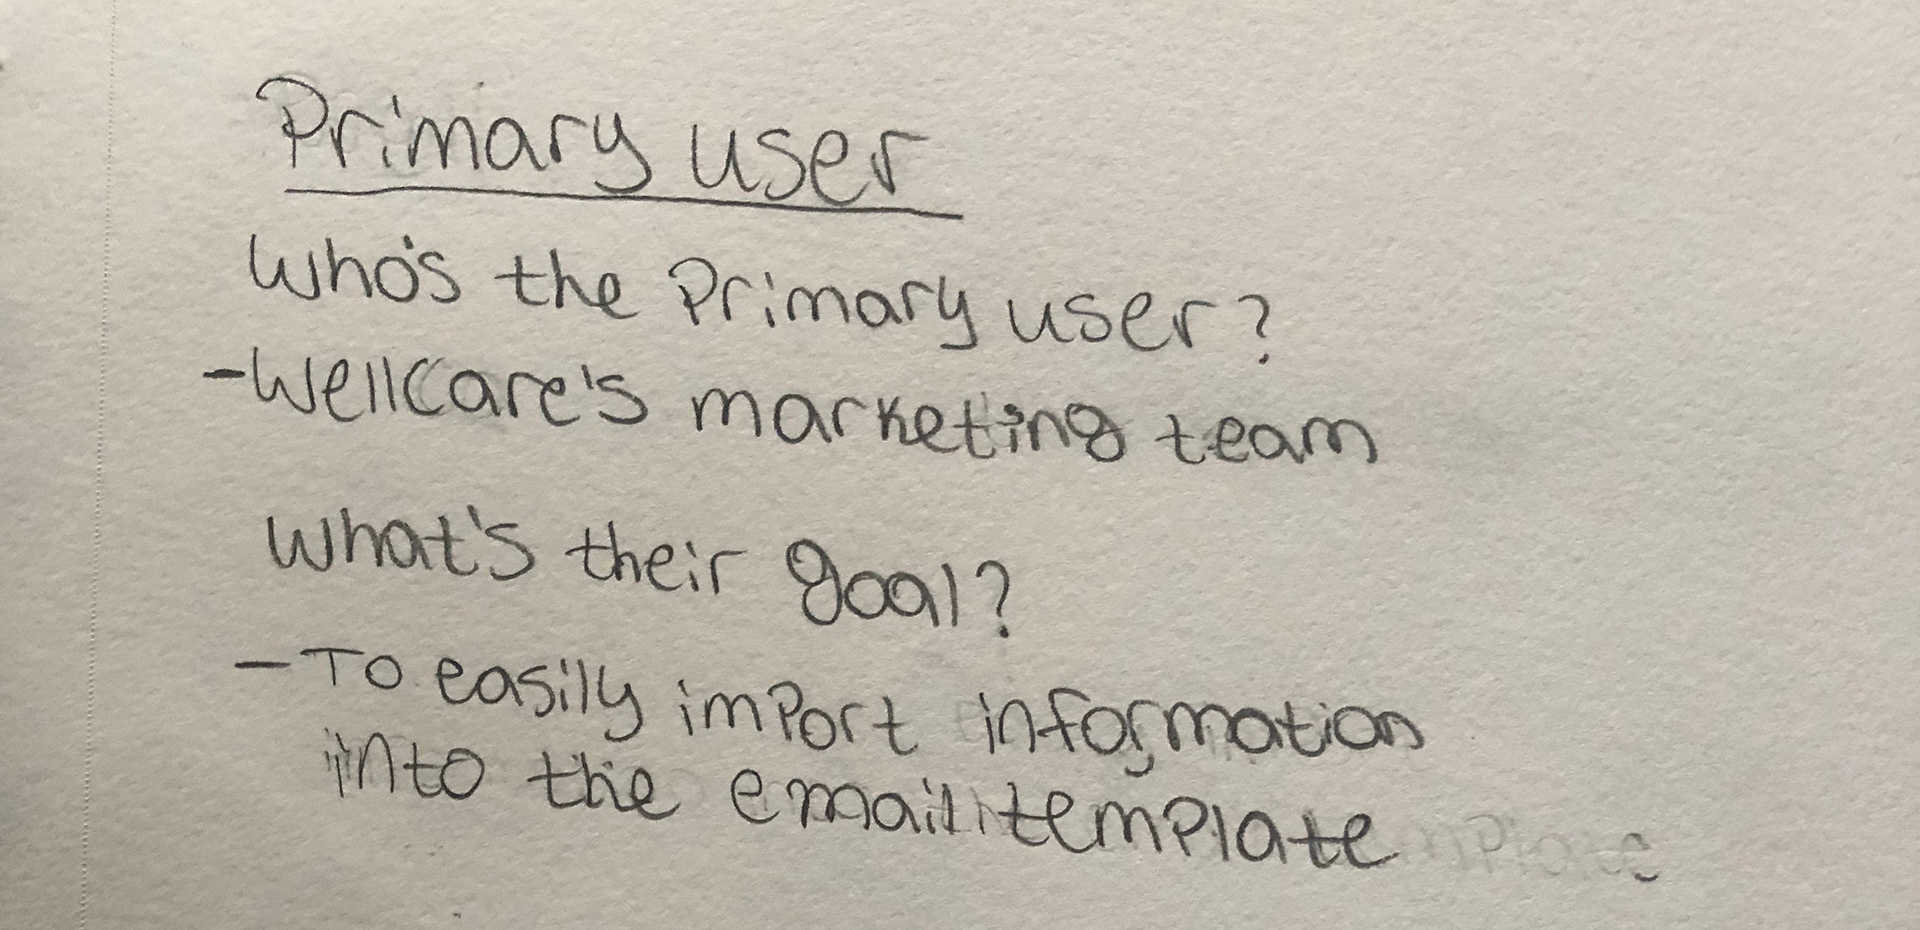 Primary user
Who's the Primary user?
-Wellcare's marketing team
What's their goal?
- To easily import information
into the email template